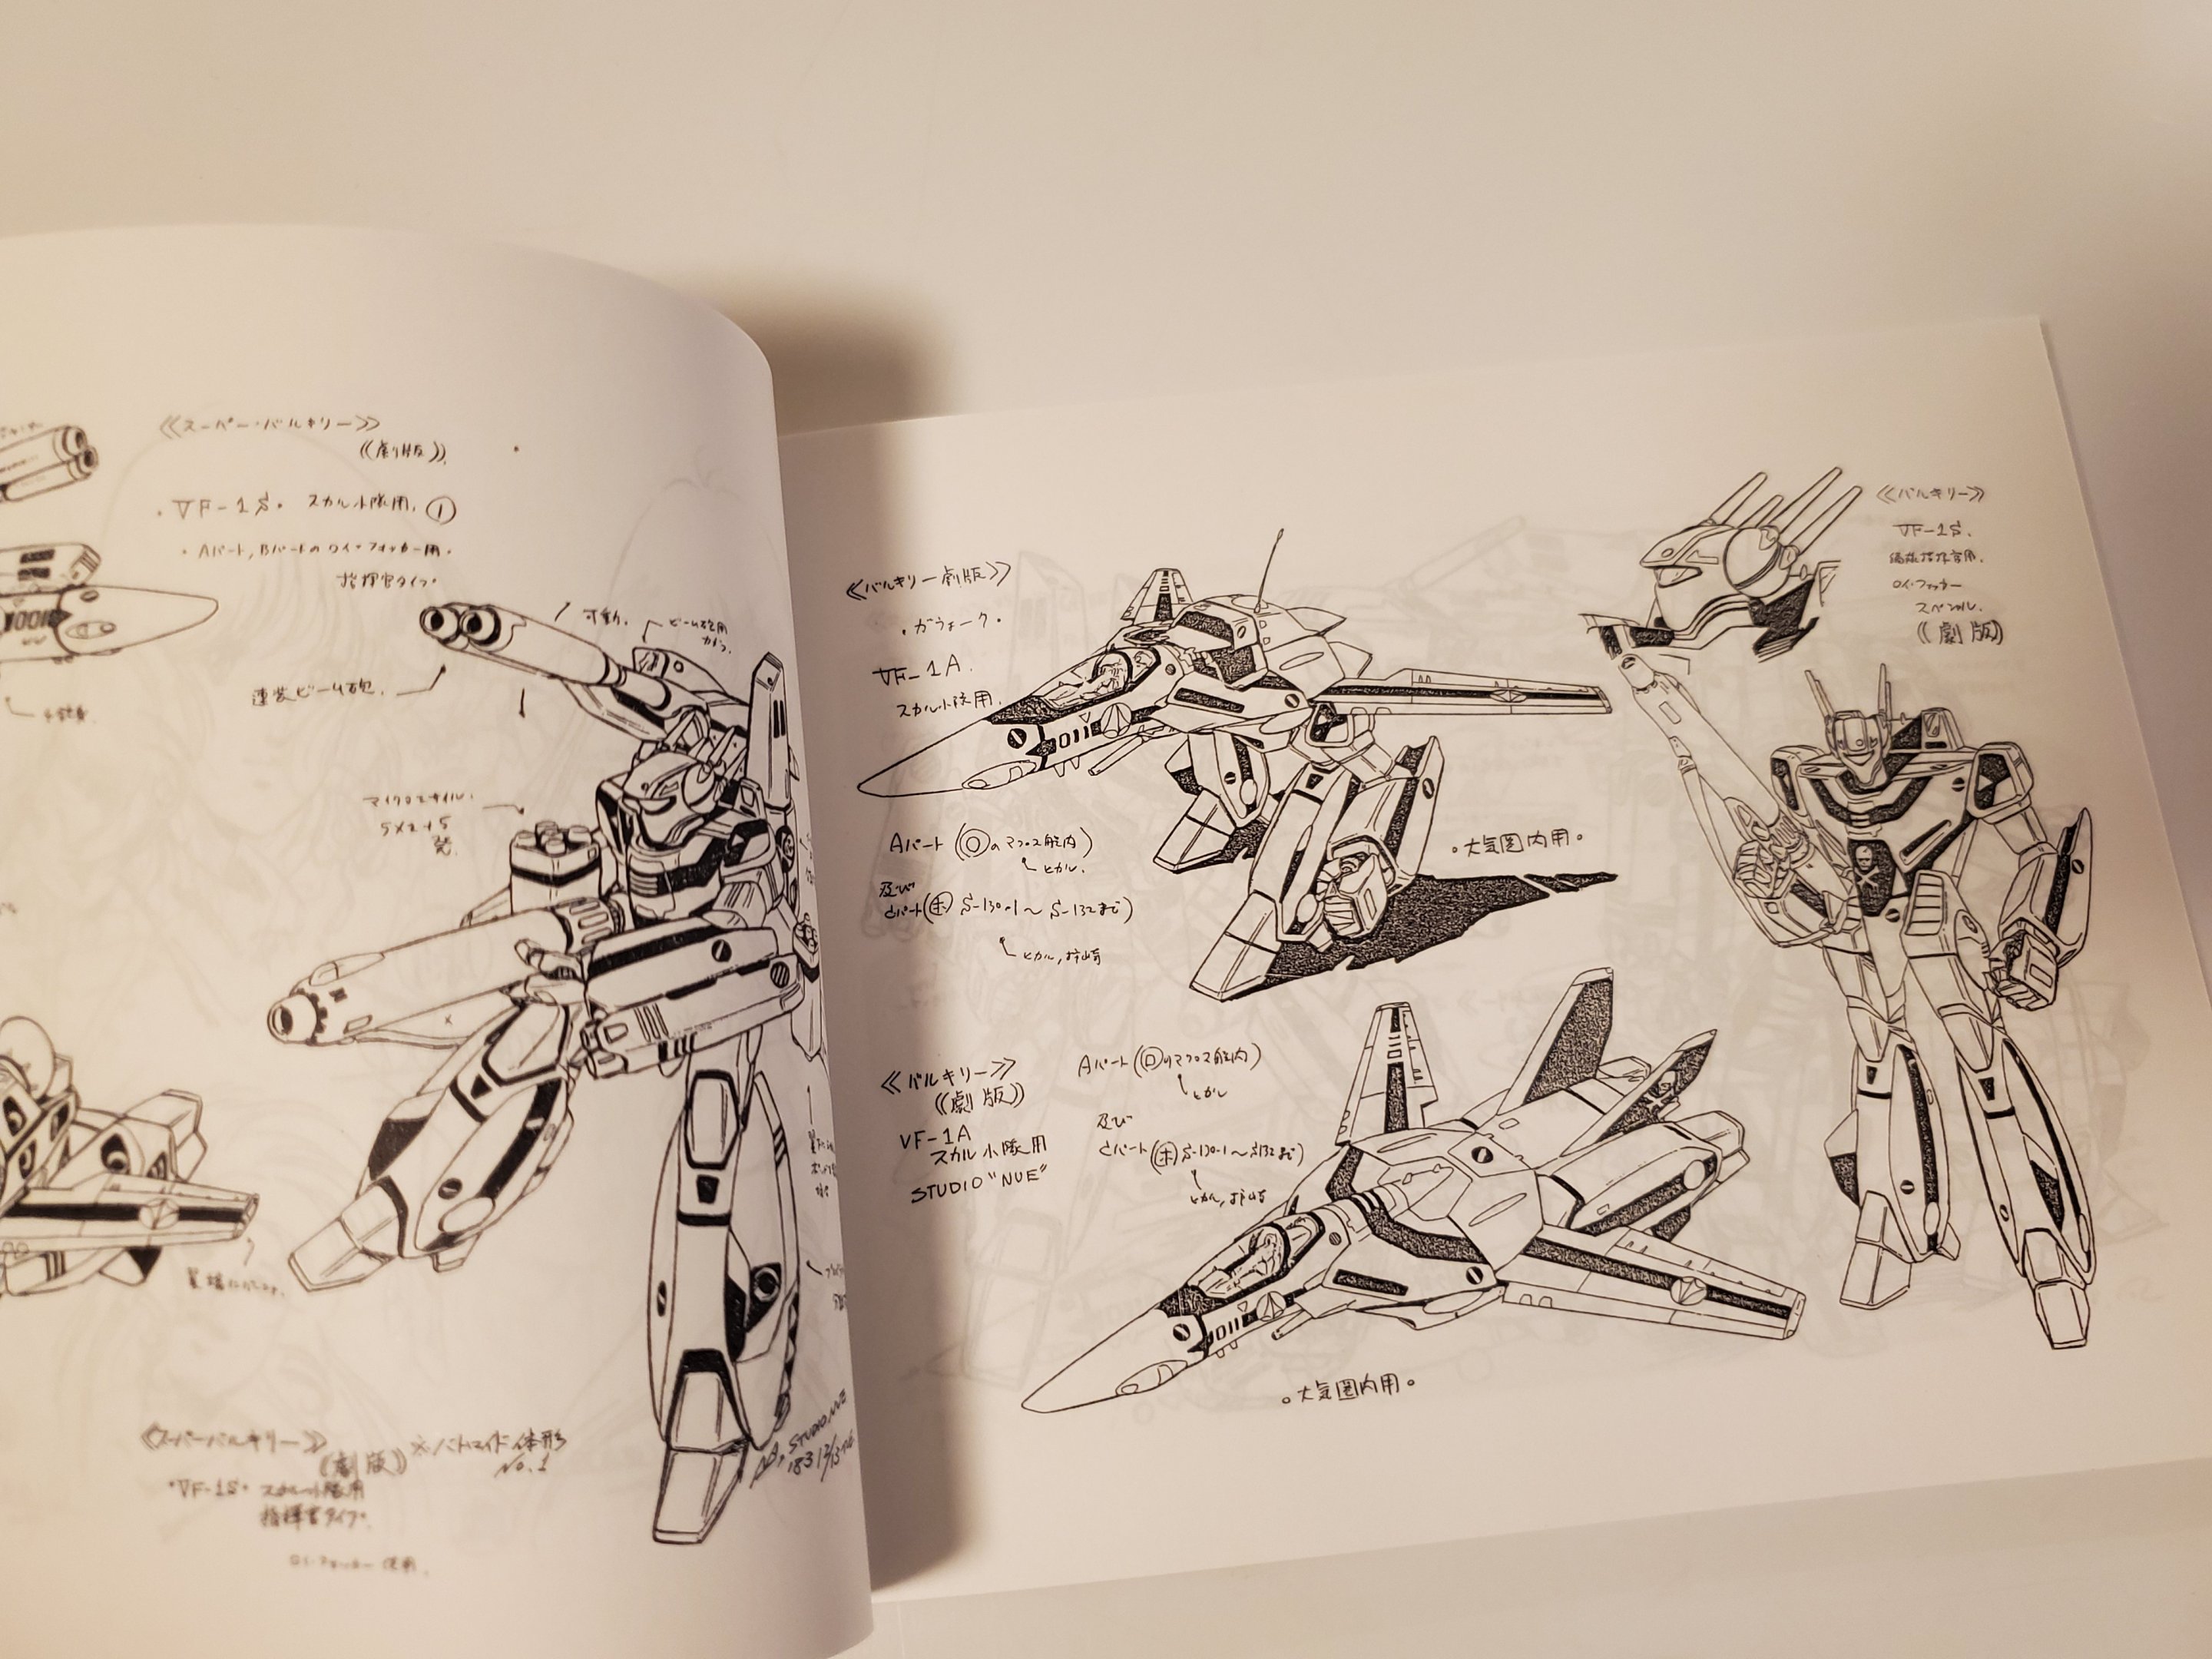 ≪スーペー・バルキリー≫
((劇版))
・VF-1S・ スカル小隊用. ①
・Aパート, Bパートのロイ・フォッカー用・
指揮官タイプ・
可動.
ビーム砲用
カメラ.
連装ビーム砲.
マイクロミサイル.
5×2+5
発.
001
≪スーパーバルキリー≫
((劇版))
※バトロイド体形
No.1
・VF-1S・ スカル小隊用
指揮官タイプ.
ロイ・フォッカー使用.
STUDIO NUE
≪バルキリー劇版≫
・ガウォーク・
VF-1A
スカル小隊用.
011
Aパート(◎のマクロス艦内)
ヒカル.
及び
Cパート(㊍ S-130-1〜S-132まで)
ヒカル, 柿崎
・大気圏内用・
≪バルキリー≫
((劇版))
VF-1A
スカル小隊用
STUDIO "NUE"
のマクロス艦内)
ヒカル
及び
Cパート(㊍ S-130-1〜S132まで)
ヒカル, 柿崎
011
。大気圏内用。
≪バルキリー≫
VF-1S.
ロイ・フォッカー
スペシャル.
((劇版))